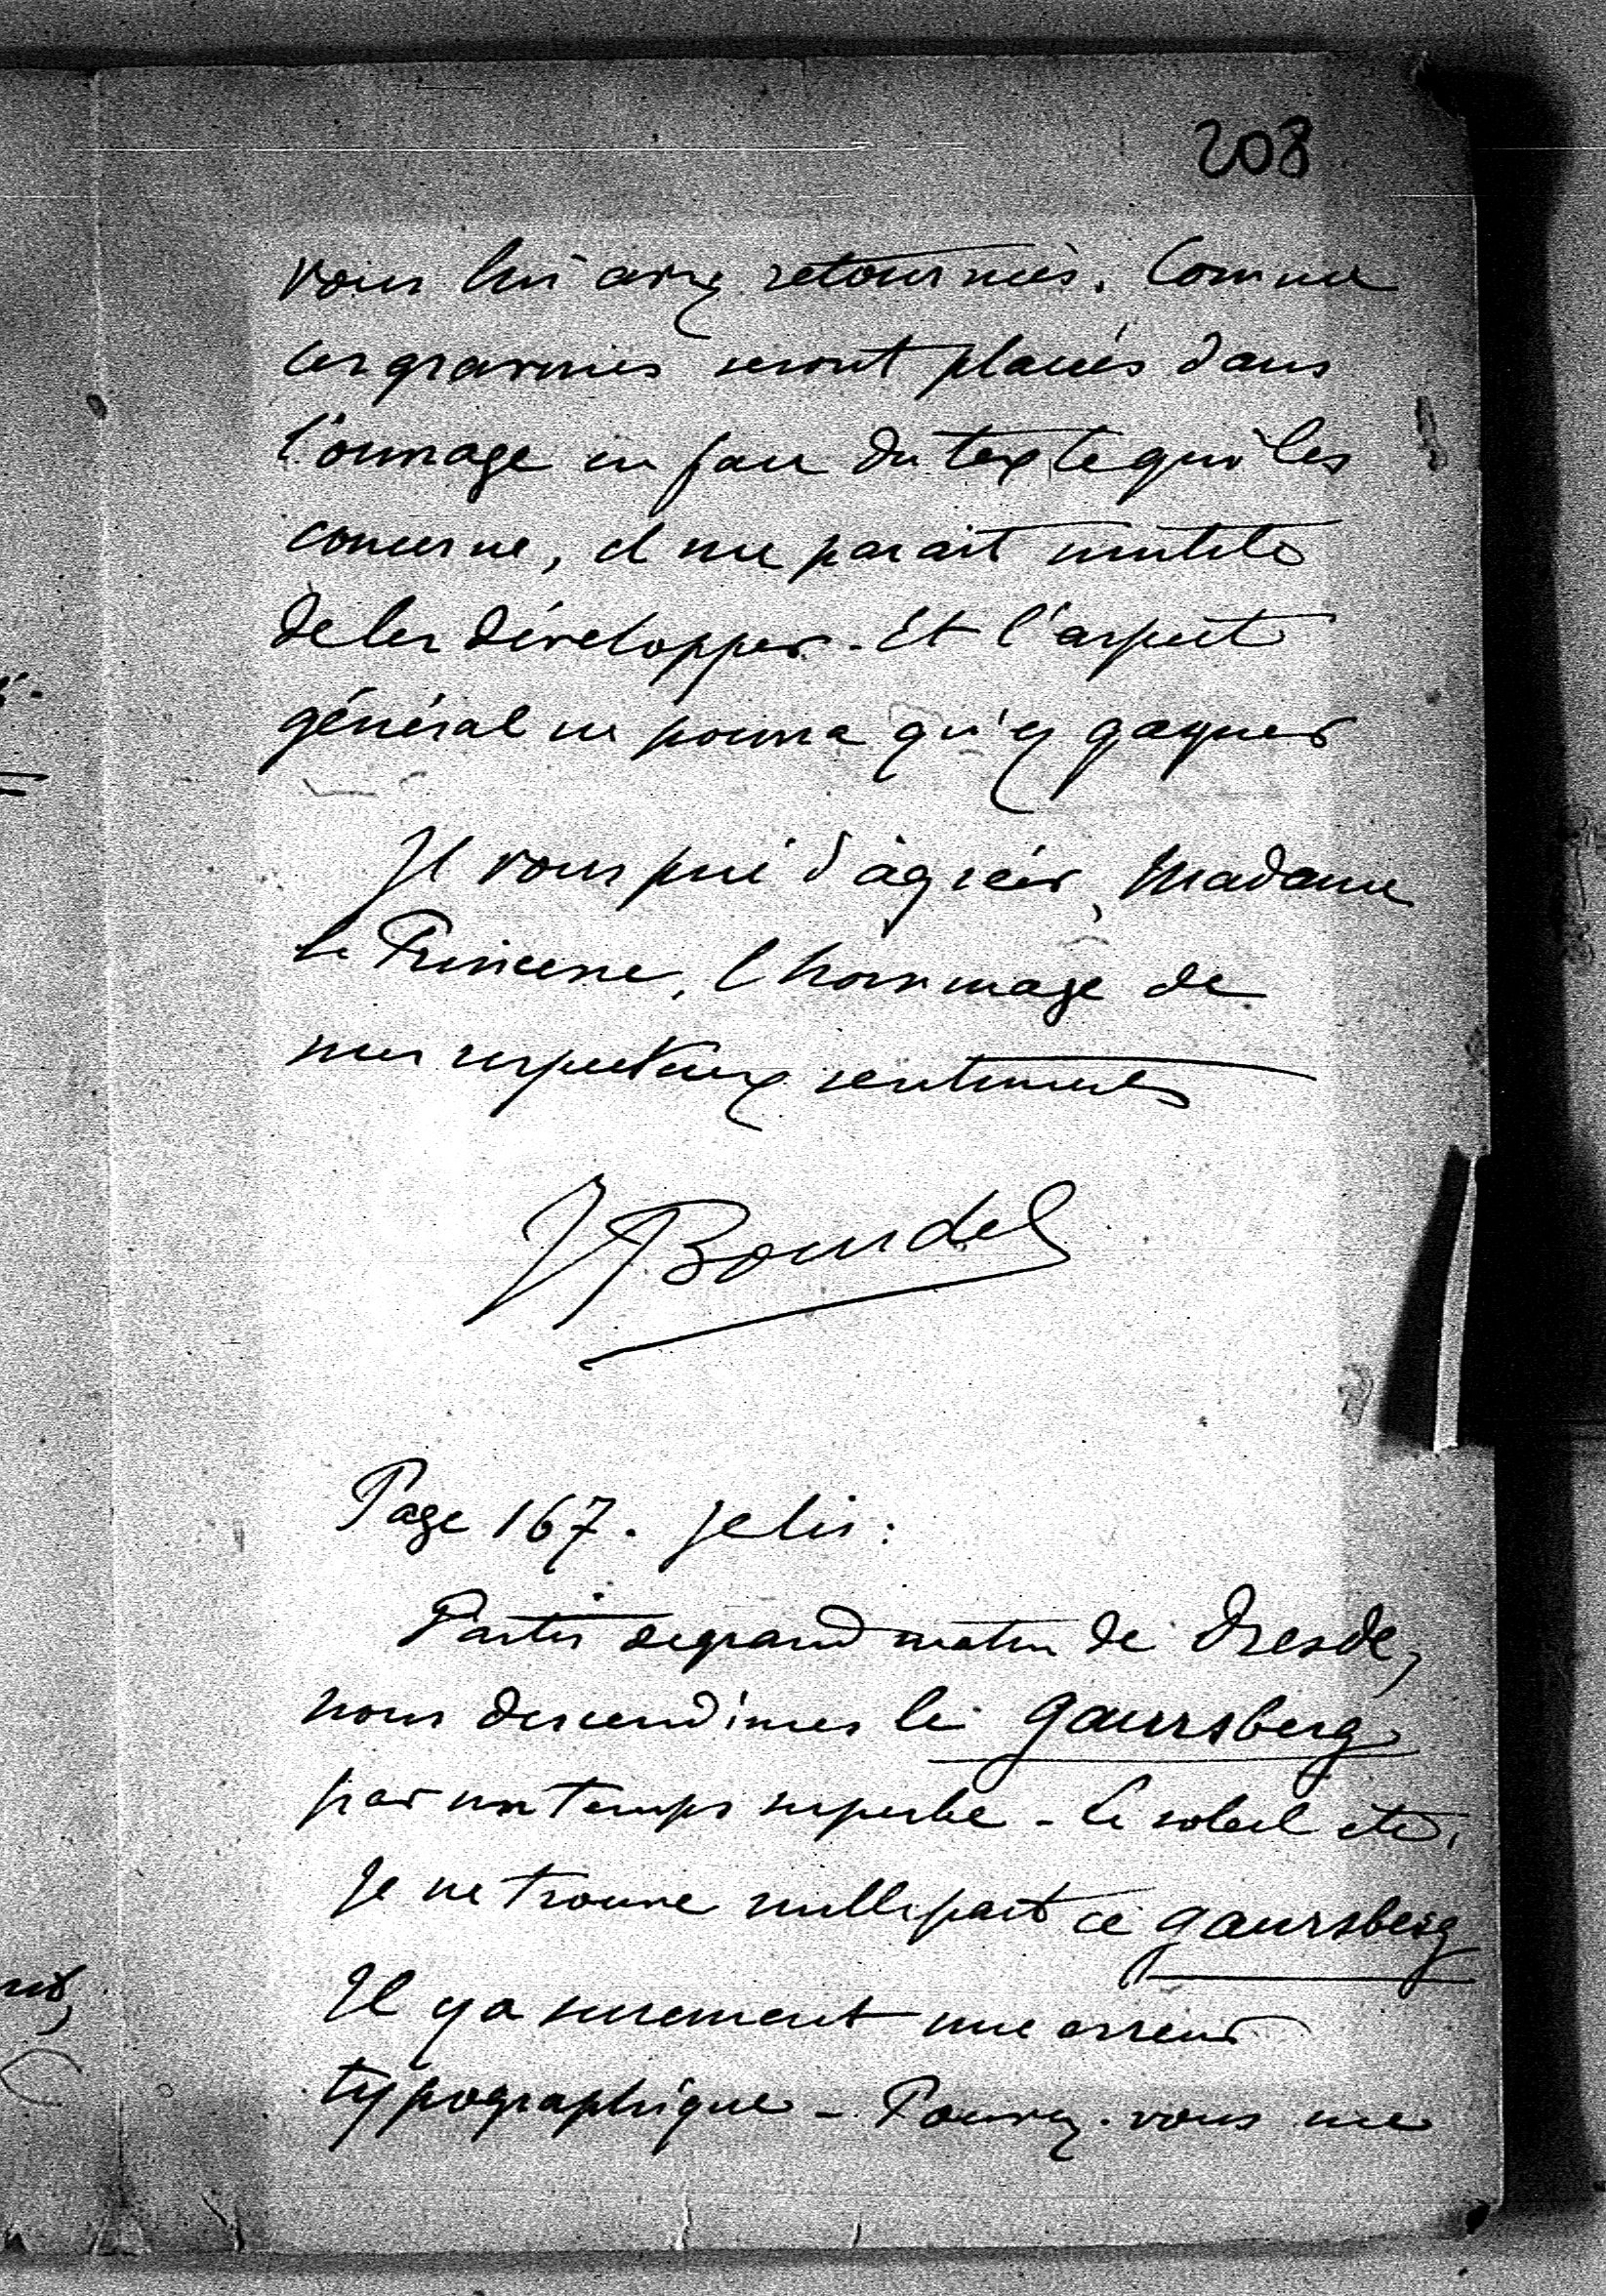 208
vous lui avez retournées. Comme
ces gravures seront placées dans
l'ouvrage en face du texte qui les
concerne, il me parait inutile
de les développer. Et l'aspect
général ne pourra qu'y gagner
Je vous prie d'agréer, Madame
la Princesse, l'hommage de
mes respectueux sentiments
J Bourdel
Page 167. Je lis :
Partis de grand matin de Dresde,
nous descendimes le Gaursberg
par un temps superbe - Le soleil etc.
Je ne trouve nulle part ce Gaursberg
Il y a surement une erreur
typographique - Pouvez-vous me